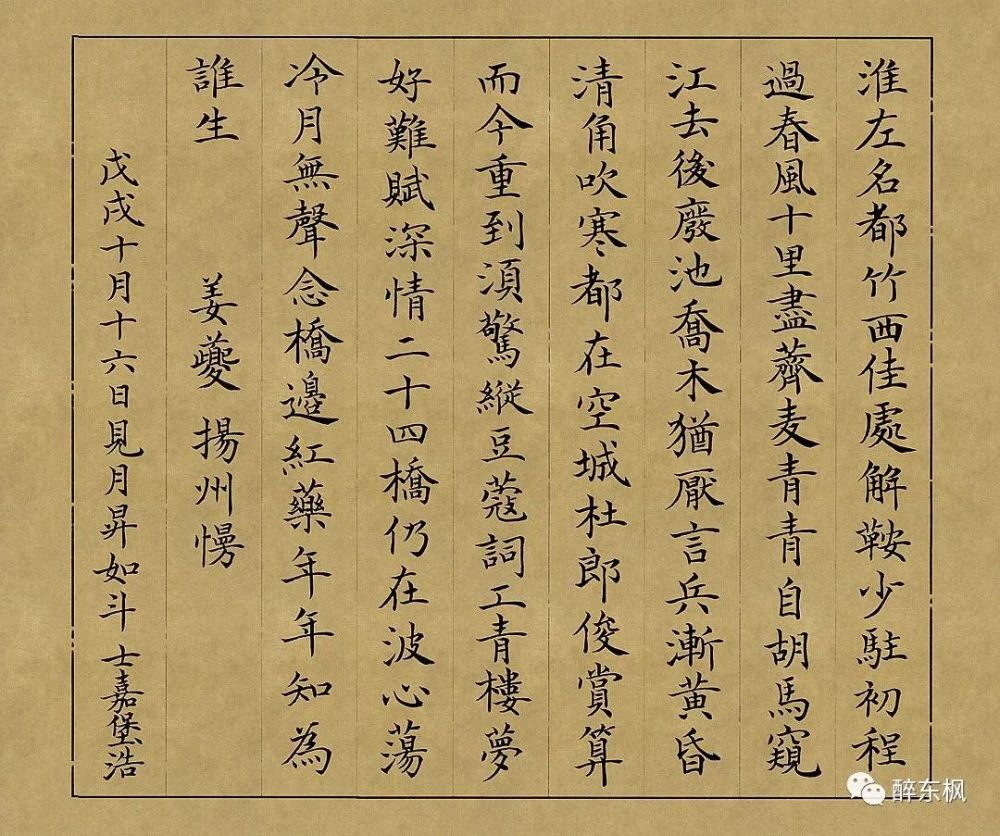 淮左名都竹西佳處解鞍少駐初程
過春風十里盡薺麦青青自胡馬窺
江去後廢池喬木猶厭言兵漸黃昏
清角吹寒都在空城杜郎俊賞算
而今重到須驚縱豆蔻詞工青樓夢
好難賦深情二十四橋仍在波心蕩
冷月無聲念橋邊紅藥年年知為
誰生 姜夔 揚州慢
戊戌十月十六日見月昇如斗 士嘉堡浩
醉东枫